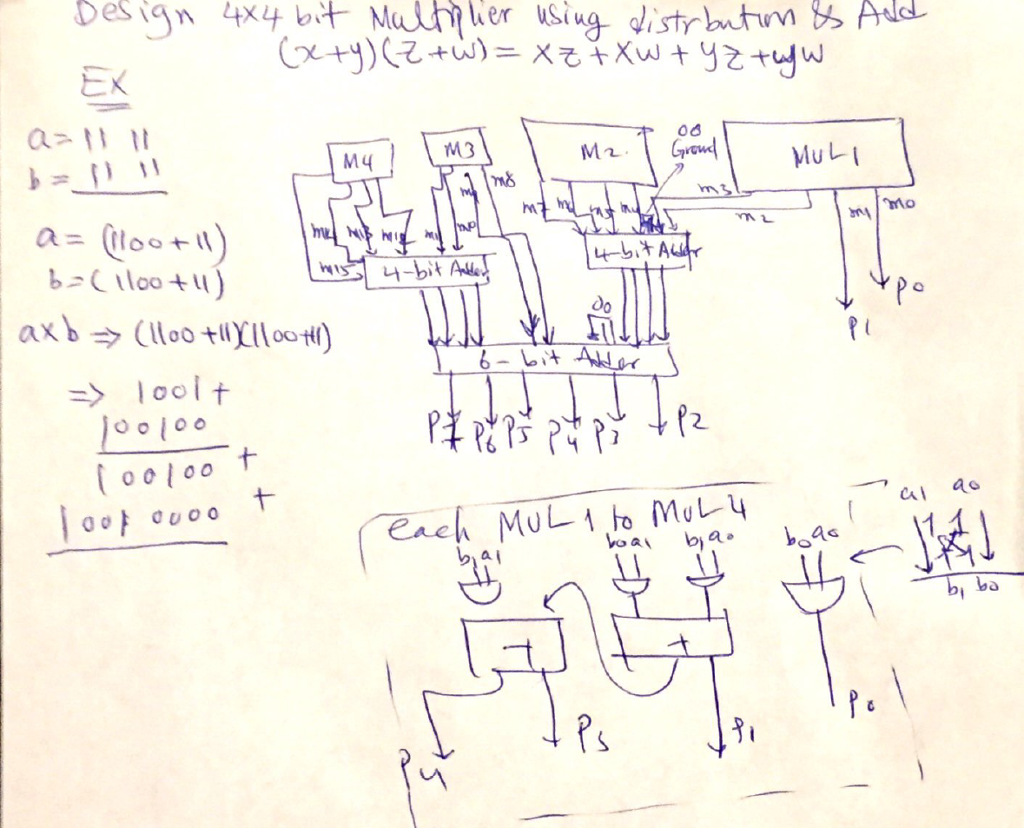 Design 4x4 bit Multiplier using distribution & Add
(x+y)(z+w) = xz + xw + yz + yw
Ex
a = 11 11
b = 11 11
a = (1100 + 11)
b = (1100 + 11)
axb => (1100 + 11)(1100+11)
=> 1001 +
100100
100100 +
1001 0000 +
M4
M3
M2
00
Ground
MUL1
m8
m3
m2
m1
m0
m7
m15
4-bit Adder
4-bit Adder
P0
P1
00
6-bit Adder
P7 P6 P5 P4 P3 P2
each MUL 1 to MUL 4
b1a1
b0a1
b1a0
b0a0
a1 a0
b1 b0
+
+
P0
P1